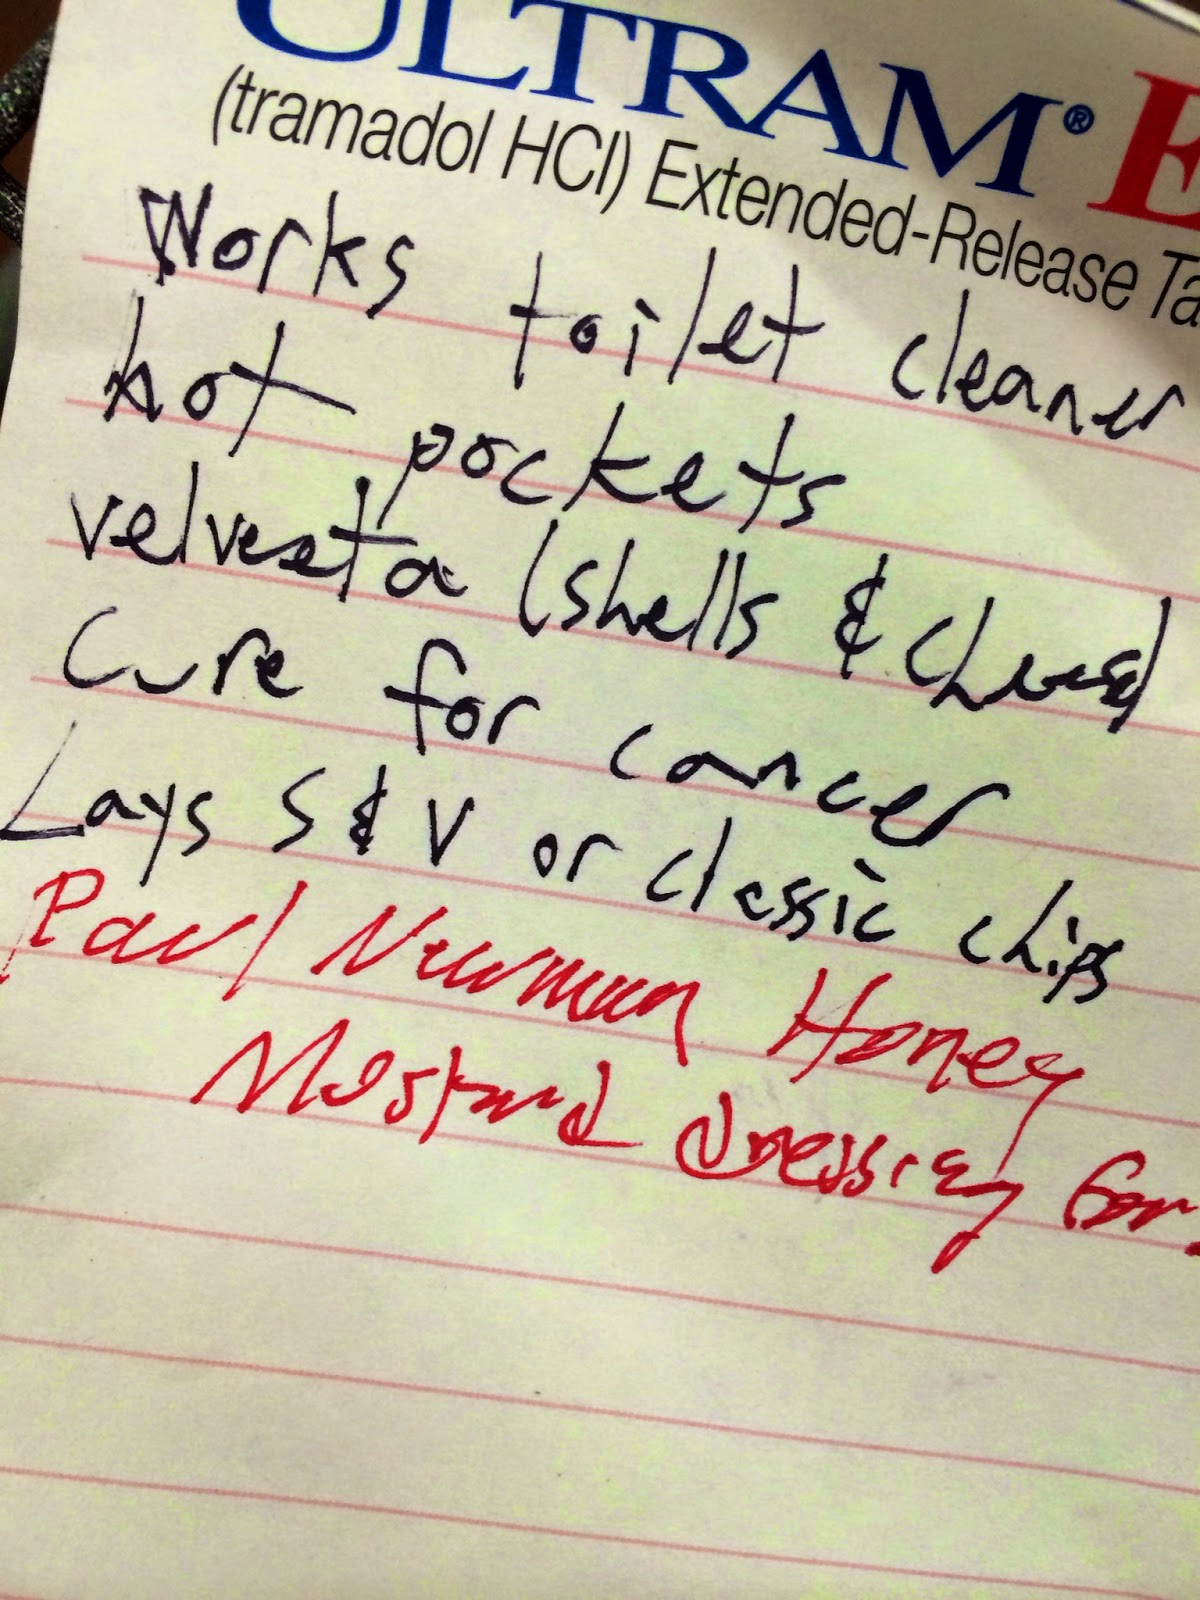 ULTRAM® E
(tramadol HCl) Extended-Release Ta
Works toilet cleaner
hot pockets
velveeta (shells & cheese)
Cure for cancer
Lays S & V or classic chips
Paul Newman Honey
Mustard dressing for